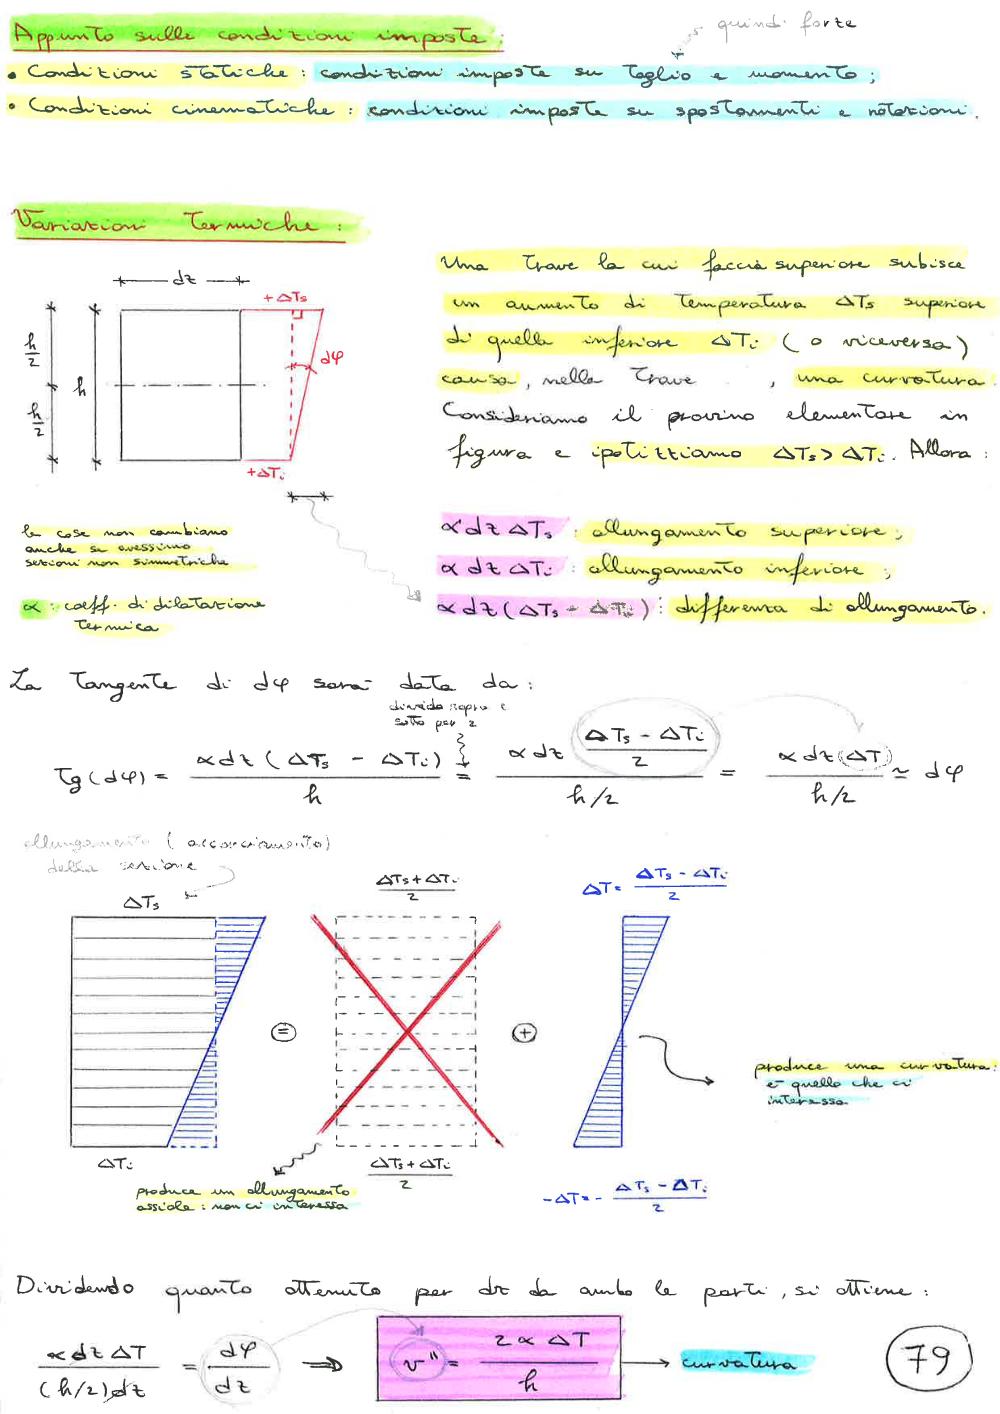 quindi forze
Appunto sulle condizioni imposte:
• Condizioni statiche: condizioni imposte su taglio e momento;
• Condizioni cinematiche: condizioni imposte su spostamenti e rotazioni.
Variazioni Termiche:
dz
+ΔTs
h/2
h
h/2
dφ
+ΔTi
Una trave la cui faccia superiore subisce
un aumento di temperatura ΔTs superiore
di quella inferiore ΔTi (o viceversa)
causa, nella trave, una curvatura.
Consideriamo il provino elementare in
figura e ipotizziamo ΔTs > ΔTi. Allora:
le cose non cambiano
anche se avessimo
sezioni non simmetriche
α: coeff. di dilatazione
termica
α dz ΔTs: allungamento superiore;
α dz ΔTi: allungamento inferiore;
α dz (ΔTs - ΔTi): differenza di allungamento.
La tangente di dφ sarà data da:
divido sopra e
sotto per 2
Tg(dφ) = α dz (ΔTs - ΔTi) / h = α dz (ΔTs - ΔTi)/2 / h/2 = α dz (ΔT) / h/2 ≃ dφ
allungamento (accorciamento)
della sezione
ΔTs
(ΔTs + ΔTi)/2
ΔT = (ΔTs - ΔTi)/2
=
+
produce una curvatura:
è quello che ci
interessa
ΔTi
(ΔTs + ΔTi)/2
-ΔT = - (ΔTs - ΔTi)/2
produce un allungamento
assiale: non ci interessa
Dividendo quanto ottenuto per dz da ambo le parti, si ottiene:
α dz ΔT / (h/2) dz = dφ/dz ⇒ v'' = 2 α ΔT / h → curvatura
79